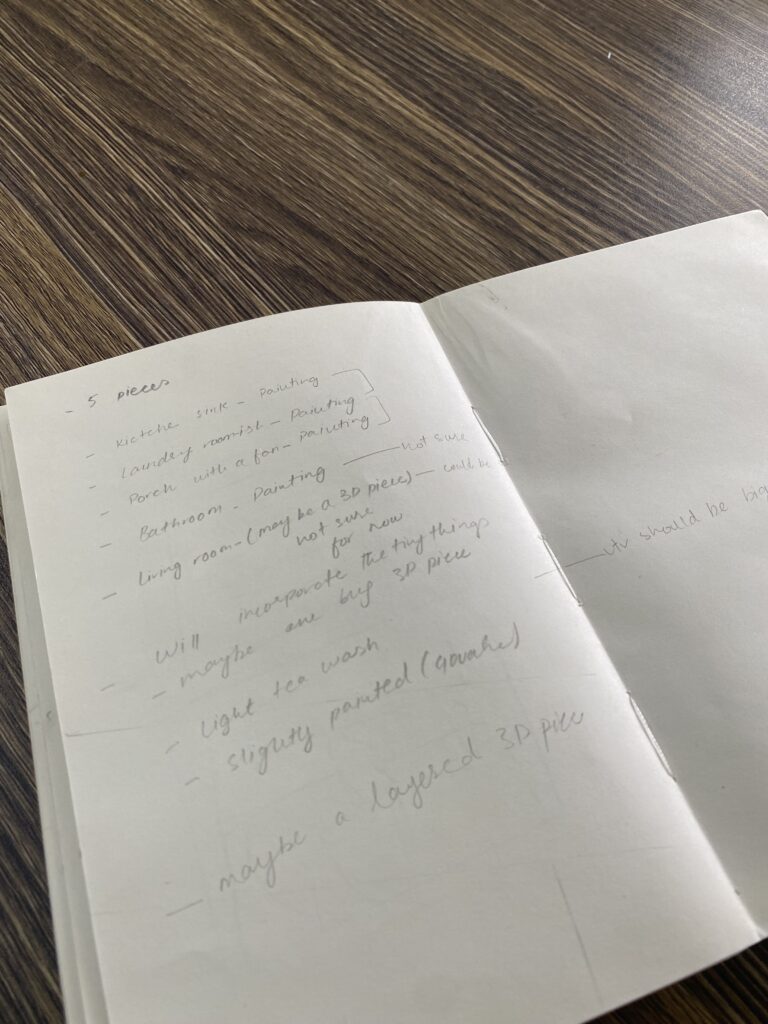 - 5 pieces
- Kietche sink - Painting
- Laundry roomish - Painting
- Porch with a fan - Painting
- Bathroom - Painting — not sure
- Living room - (may be a 3D piece) — could be
not sure
for now
- Will incorporate the tiny things
- maybe one big 3D piece
— should be big
- Light tea wash
- Slightly painted (gouahe)
- maybe a layered 3D piece